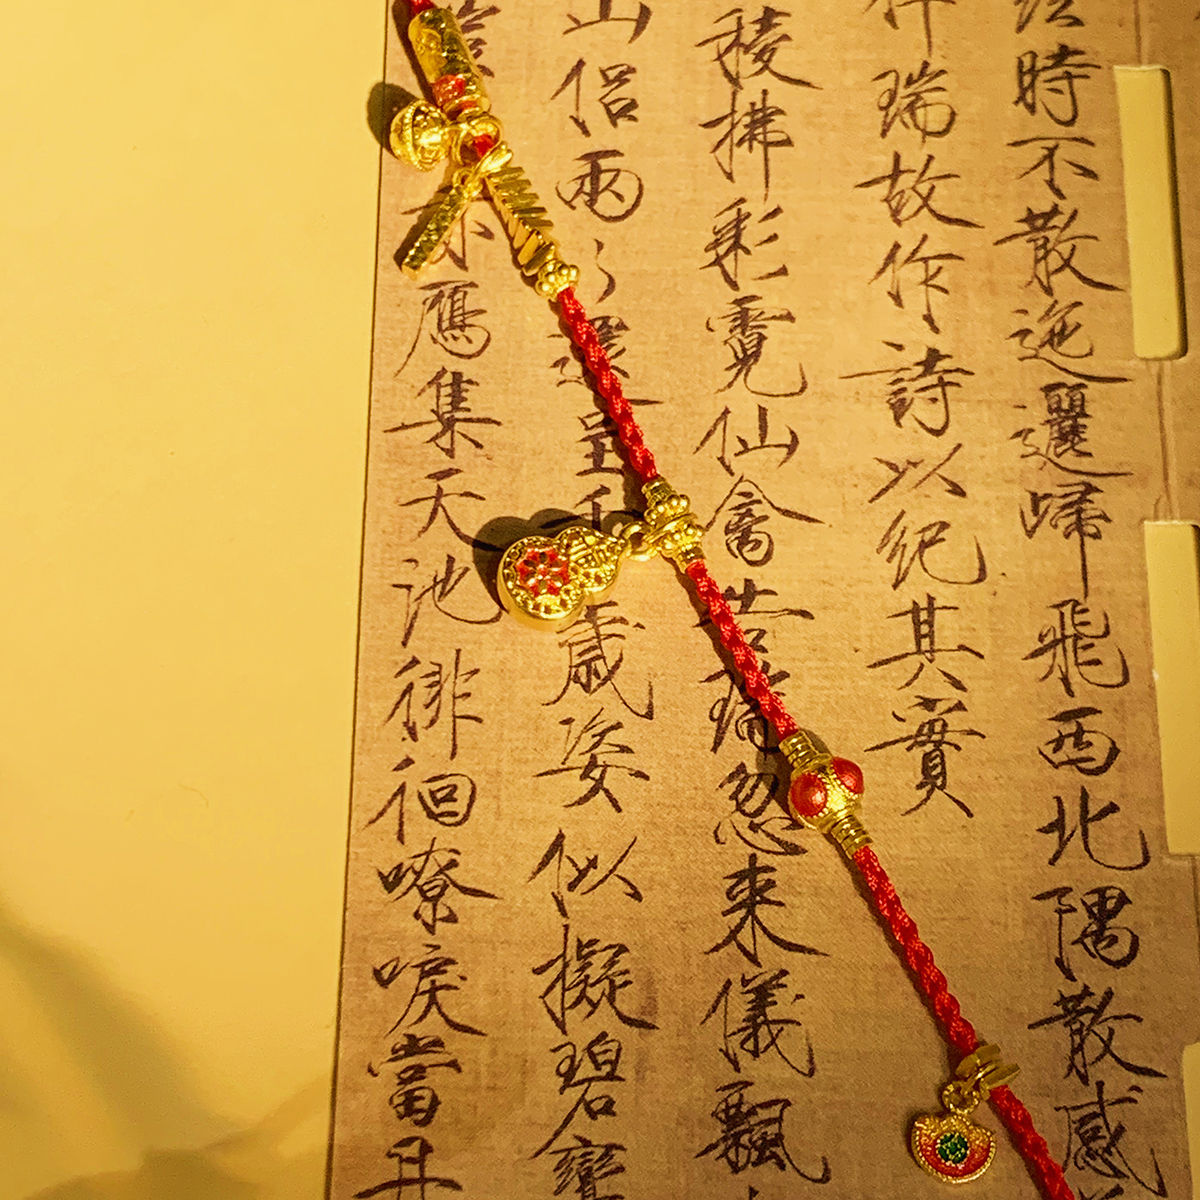 經時不散迤邐歸飛西北隅散感
瑞故作詩以紀其實
稜拂彩霓仙禽告瑞忽來儀飄
山侶兩〻還呈千歲姿似擬碧鸞
鴈集天池徘徊嘹唳當丹